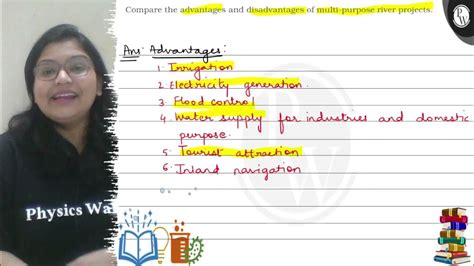 Compare the advantages and disadvantages of multi-purpose river projects.
Ans: Advantages:
1. Irrigation
2. Electricity generation.
3. Flood control
4. Water supply for industries and domestic
purpose.
5. Tourist attraction
6. Inland navigation
Physics Wa